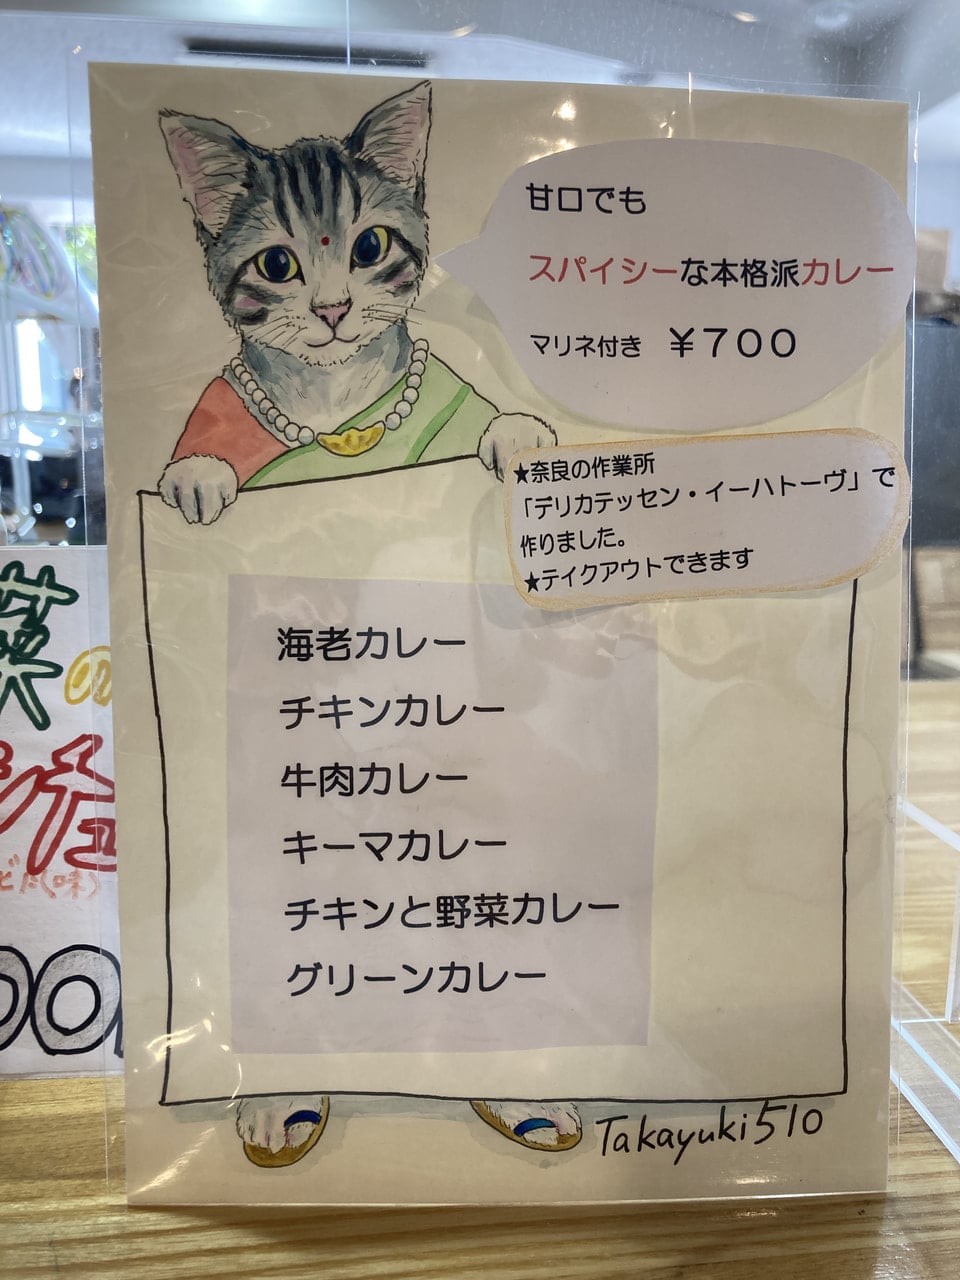 甘口でも
スパイシーな本格派カレー
マリネ付き ￥７００
★奈良の作業所
「デリカテッセン・イーハトーヴ」で
作りました。
★テイクアウトできます
海老カレー
チキンカレー
牛肉カレー
キーマカレー
チキンと野菜カレー
グリーンカレー
Takayuki510
菜の